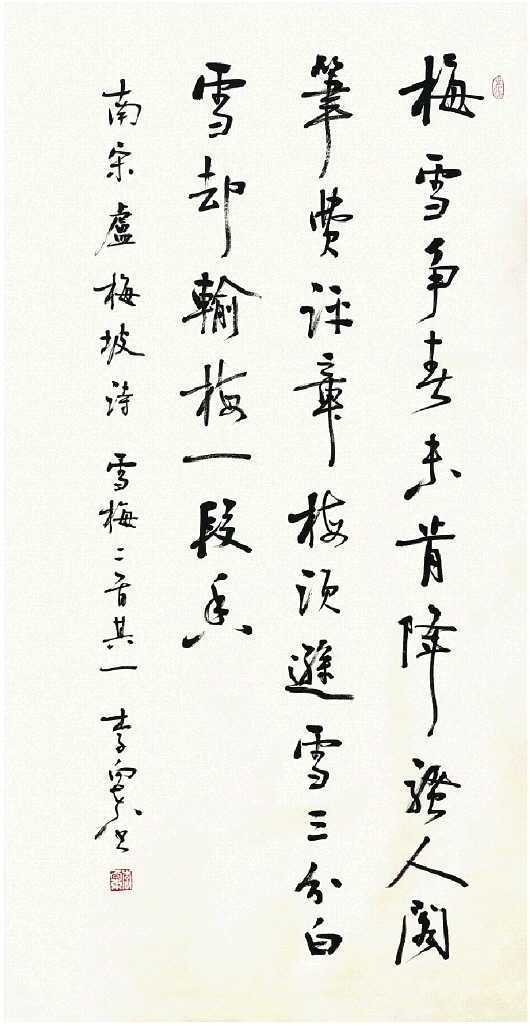 梅雪争春未肯降骚人阁
笔费评章梅须逊雪三分白
雪却输梅一段香
南宋盧梅坡诗 雪梅二首其一 李